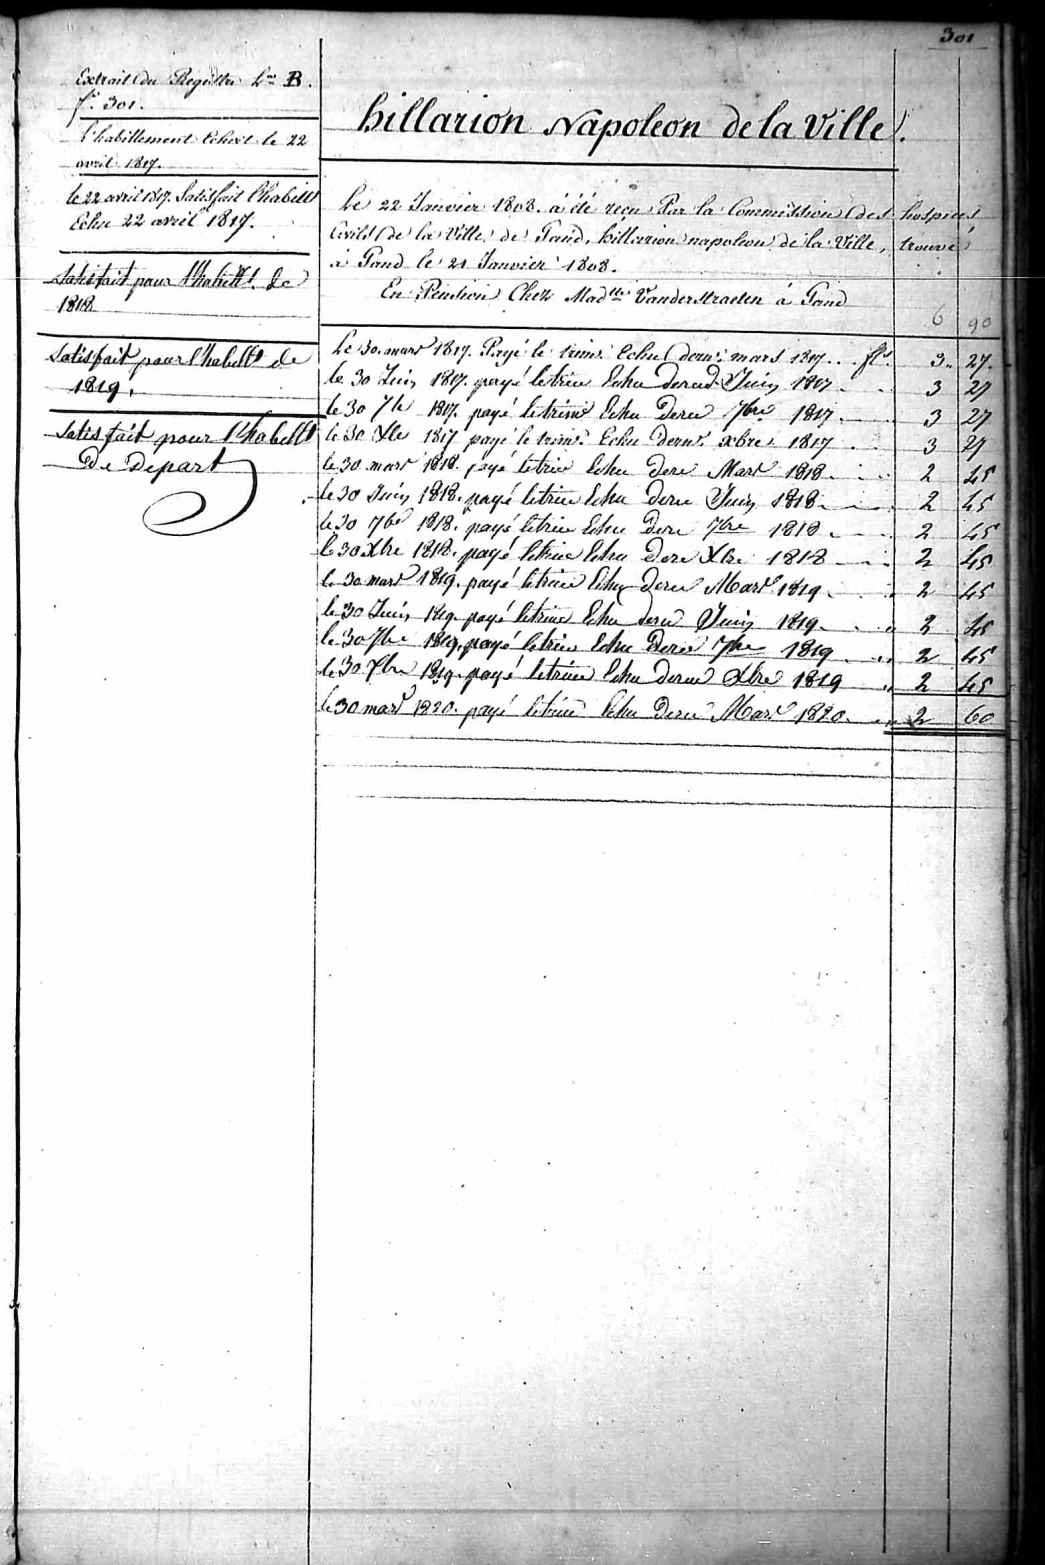 301
Extrait du Registre Lre B.
fo. 301.
l'habillement Echoit le 22
avril 1817.
le 22 avril 1817. Satisfait l'habillt
Echu 22 avril 1817.
Satisfait pour l'habillt. de
1818
Satisfait pour l'habillt de
1819.
Satisfait pour l'habillt
De Depart
hillarion Napoleon de la Ville.
Le 22 Janvier 1808. a été reçu Par la Commission des hospices
Civils de la Ville de Gand, hillarion napoleon de la Ville, trouvé
a Gand le 21 Janvier 1808.
En Pension Chez Madlle Ve Vanderstraeten á Gand
6 90
Le 30. mars 1817. Payé le trim. Echu dernr. mars 1817 . . . fls. 3 .. 27.
le 30 Juin 1817. payé le trim Echu Juin 1817 3 27
le 30 7be 1817. payé le trim Echu Dere 7bre 1817 3 27
le 30 Xbe 1817 payé le trim. Echu dernr. xbre 1817 3 27
le 30 mars 1818. payé le trim Echu dere Mars 1818 2 45
le 30 Juin 1818. payé le trim Echu dere Juin 1818 2 45
le 30 7be 1818. payé le trim Echu Dere 7bre 1818 2 45
le 30 Xbre 1818. payé le trim Echu Dere Xbre 1818 2 45
le 30 mars 1819. payé le trim Echu dere Mars 1819 2 45
le 30 Juin 1819. payé le trim Echu dere Juin 1819 " 2 45
le 30 7bre 1819. payé le trim Echu Dere 7bre 1819 " 2 45
le 30 Xbre 1819. payé le trim Echu dere Xbre 1819 " 2 45
le 30 mars 1820. payé le trim Echu Dere Mars 1820. " 2 60